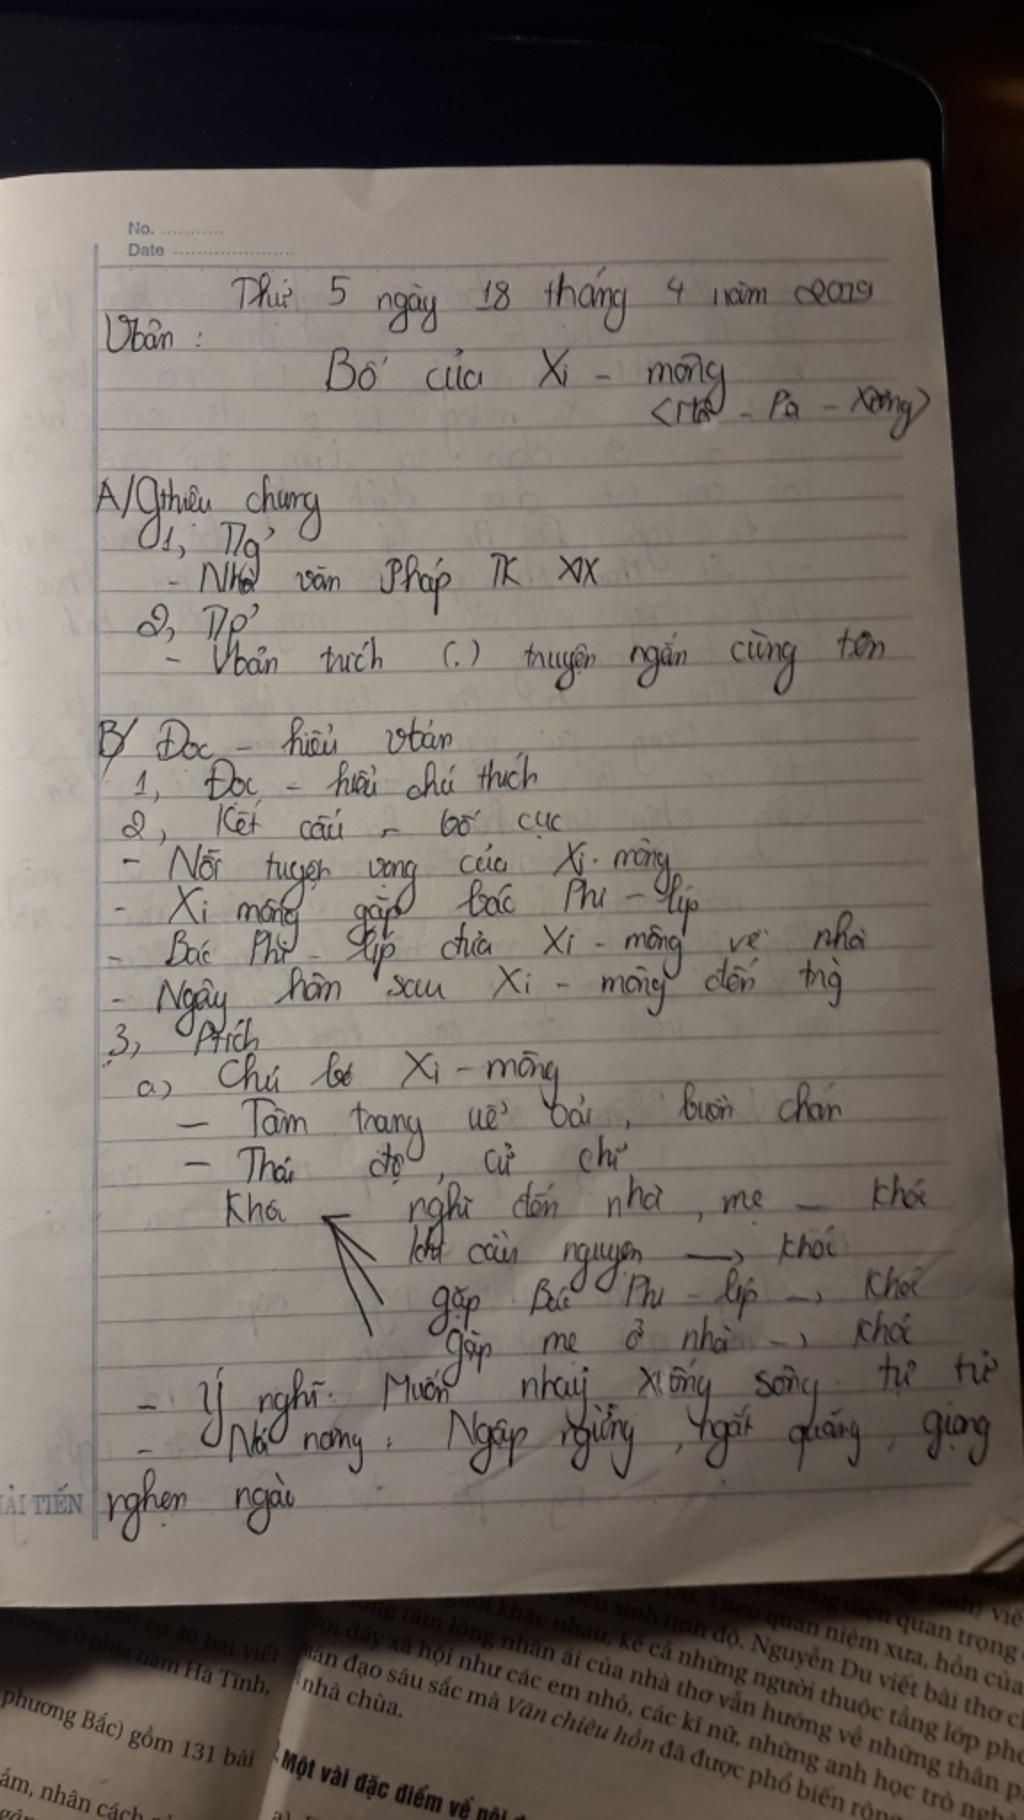 No. ............
Date ......................
Thứ 5 ngày 18 tháng 4 năm 2019
Vbản :
Bố của Xi - mông
<Mô - Pa - Xăng>
A/ Gthiệu chung
1, Tg
- Nhà văn Pháp TK XIX
2, Tp
- Vbản trích (.) truyện ngắn cùng tên
B/ Đọc - hiểu vbản
1, Đọc - hiểu chú thích
2, Kết cấu - bố cục
- Nỗi tuyệt vọng của Xi-mông
- Xi mông gặp bác Phi - líp
- Bác Phi - líp đưa Xi - mông về nhà
- Ngày hôm sau Xi - mông đến trg
3, Ptích
a) Chú bé Xi - mông
- Tâm trạng uể oải, buồn chán
- Thái độ, cử chỉ
Khóc nghĩ đến nhà, mẹ - khóc
khi cầu nguyện → khóc
gặp Bác Phi - líp → khóc
Gặp mẹ ở nhà → khóc
- Ý nghĩ: Muốn nhảy xuống sông tự tử
- Nói năng: Ngập ngừng, ngắt quãng, giọng
nghẹn ngào
HẢI TIẾN
có 40 bài viết
phương ở phía nam Hà Tĩnh,
phương Bắc) gồm 131 bài
ảm, nhân cách
siêu sinh tịnh độ. Theo quan niệm xưa, hồn của
người khác nhau, kể cả những người thuộc tầng lớp
tấm lòng nhân ái của nhà thơ vẫn hướng về những thân
đáy xã hội như các em nhỏ, các kĩ nữ, những anh học trò
nhân đạo sâu sắc mà Văn chiêu hồn đã được phổ biến
nhà chùa.
phương diện quan trọng
Nguyễn Du viết bài thơ
Một vài đặc điểm về nội